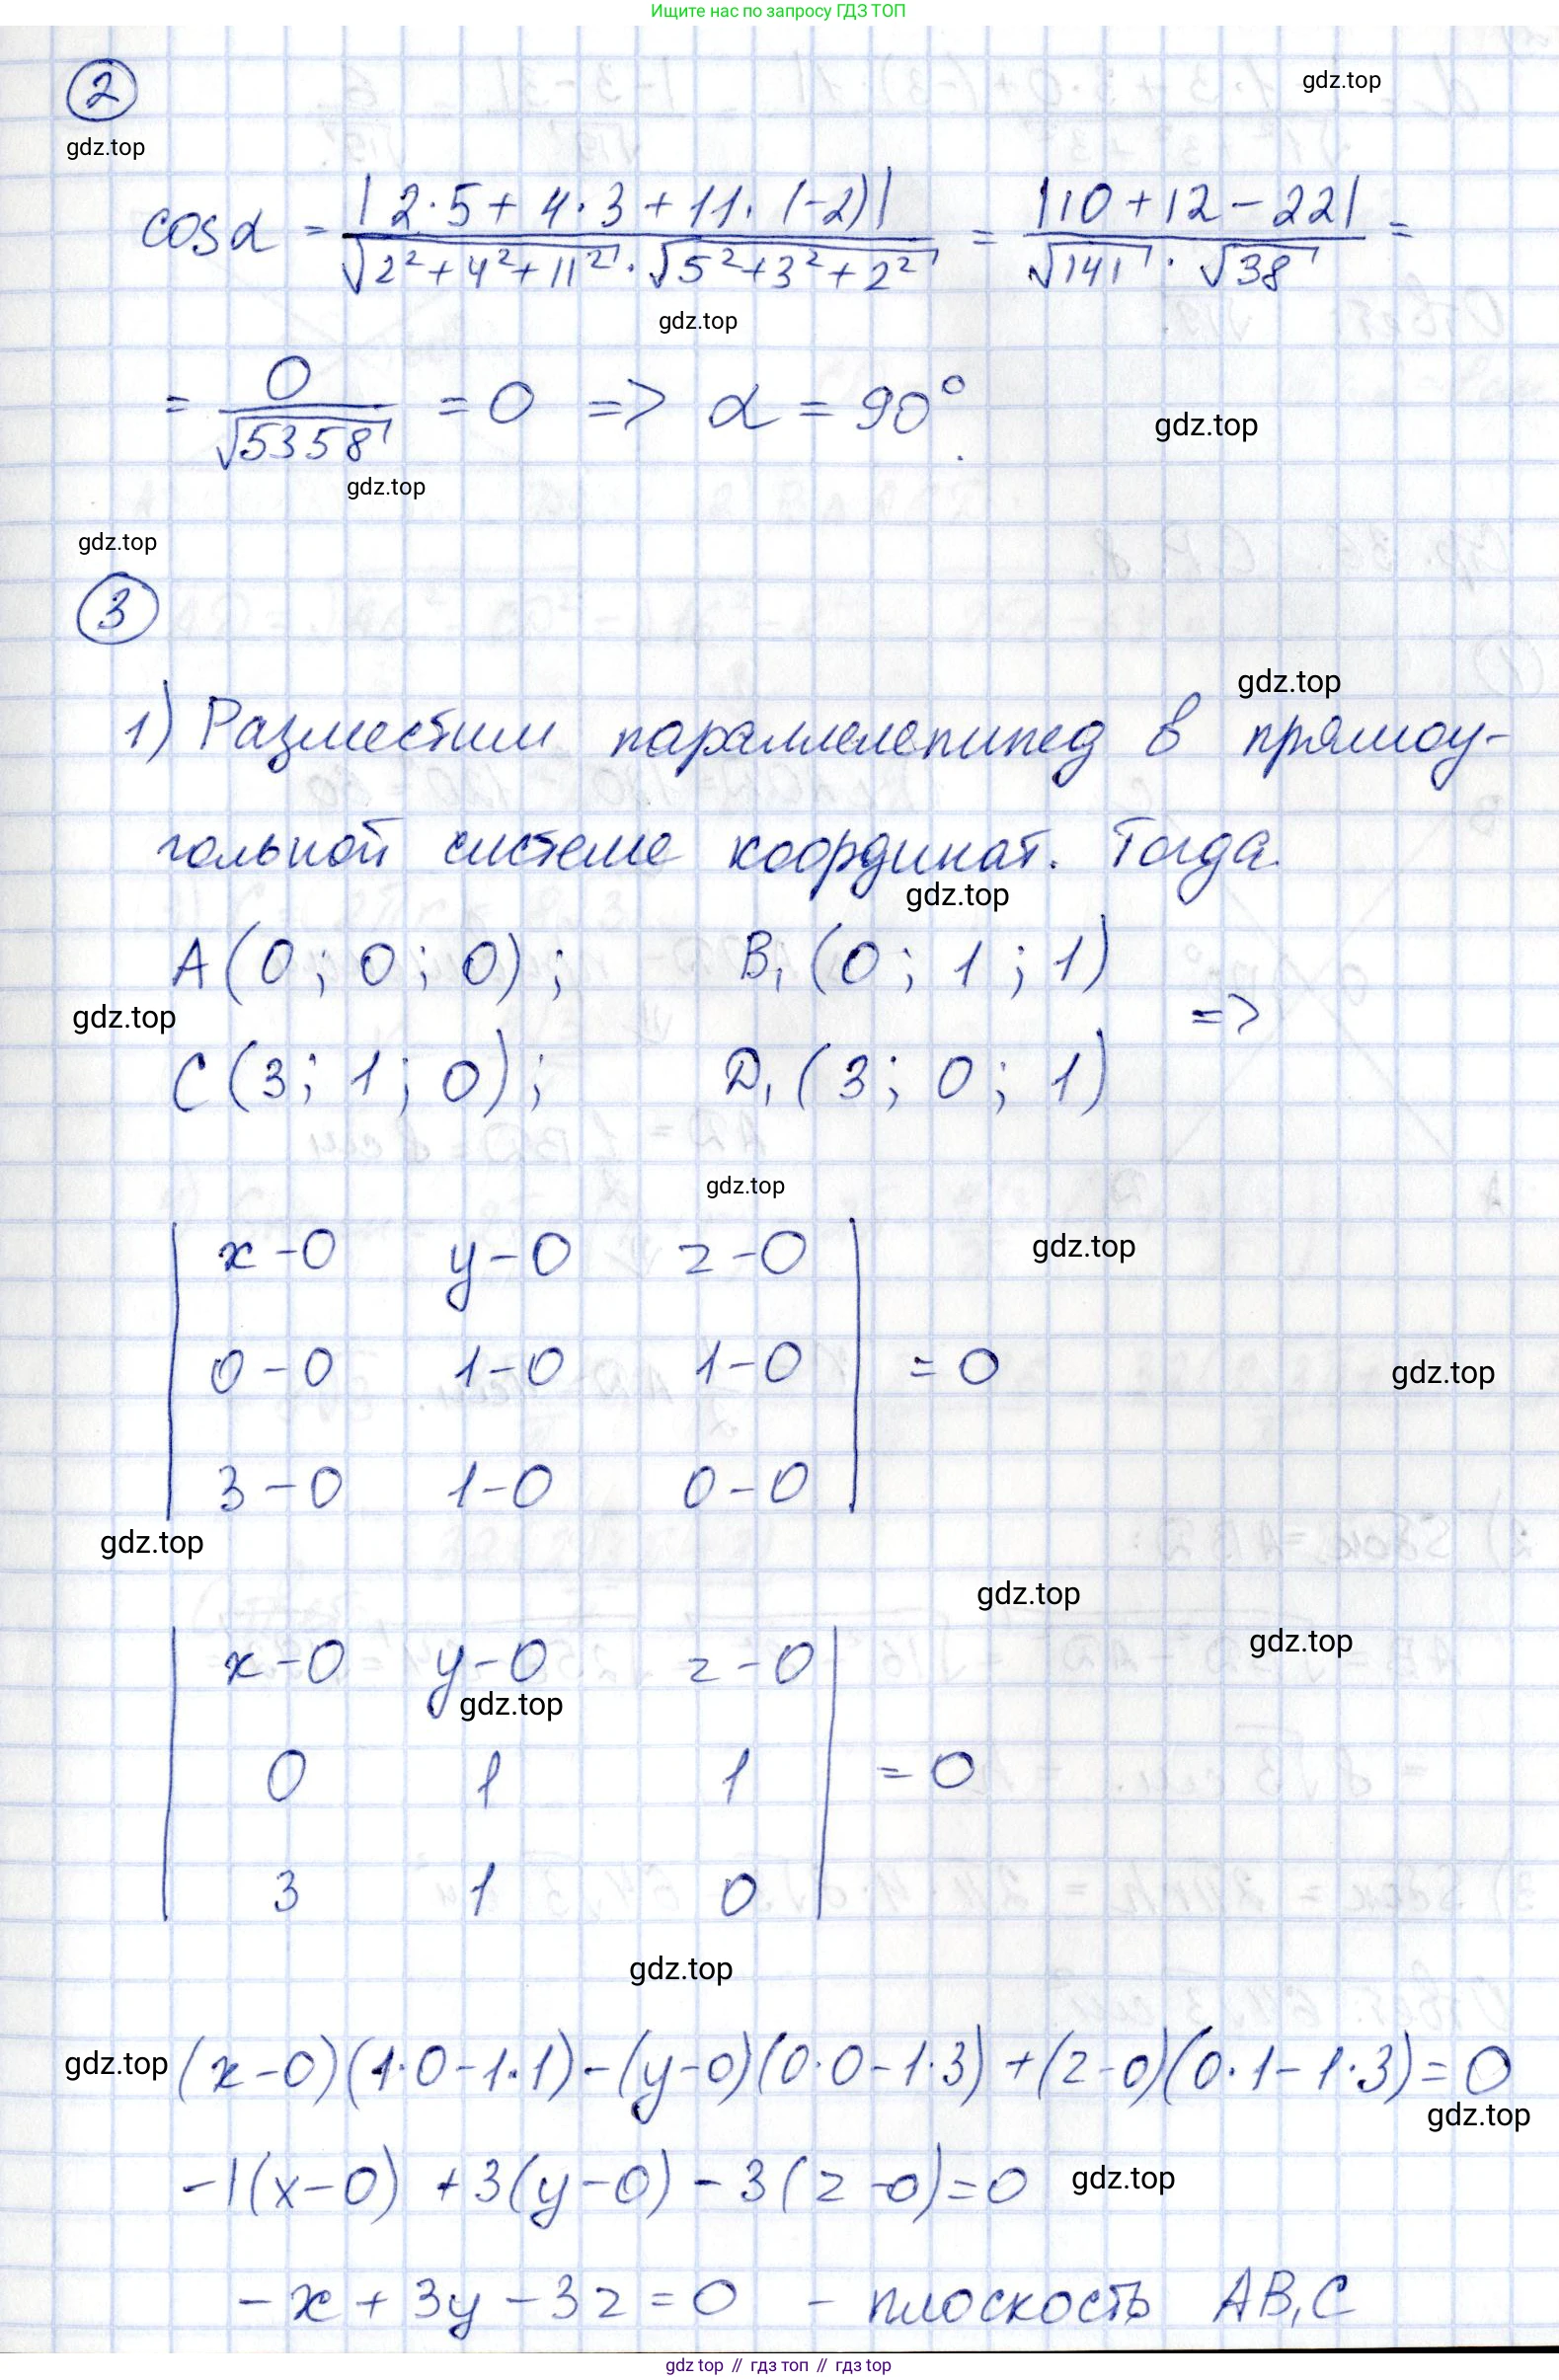 Ищите нас по запросу ГДЗ ТОП
gdz.top
②
gdz.top
cosα = |2·5 + 4·3 + 11·(-2)| / √(2²+4²+11²) · √(5²+3²+2²) = |10 + 12 - 22| / √141 · √38 =
gdz.top
= 0 / √5358 = 0 => α = 90°.
gdz.top
gdz.top
gdz.top
③
gdz.top
1) Разместим параллелепипед в прямоу-
гольной системе координат. Тогда.
gdz.top
A(0; 0; 0); B₁(0; 1; 1)
gdz.top
=>
C(3; 1; 0); D₁(3; 0; 1)
gdz.top
| x-0 y-0 z-0 |
gdz.top
| 0-0 1-0 1-0 | = 0
gdz.top
| 3-0 1-0 0-0 |
gdz.top
gdz.top
gdz.top
| x-0 y-0 z-0 |
gdz.top
| 0 1 1 | = 0
| 3 1 0 |
gdz.top
gdz.top
(x-0)(1·0-1·1)-(y-0)(0·0-1·3)+(z-0)(0·1-1·3)=0
gdz.top
-1(x-0) +3(y-0) - 3(z-0)=0
gdz.top
-x + 3y - 3z = 0 - плоскость AB₁C
gdz top // гдз топ // гдз top